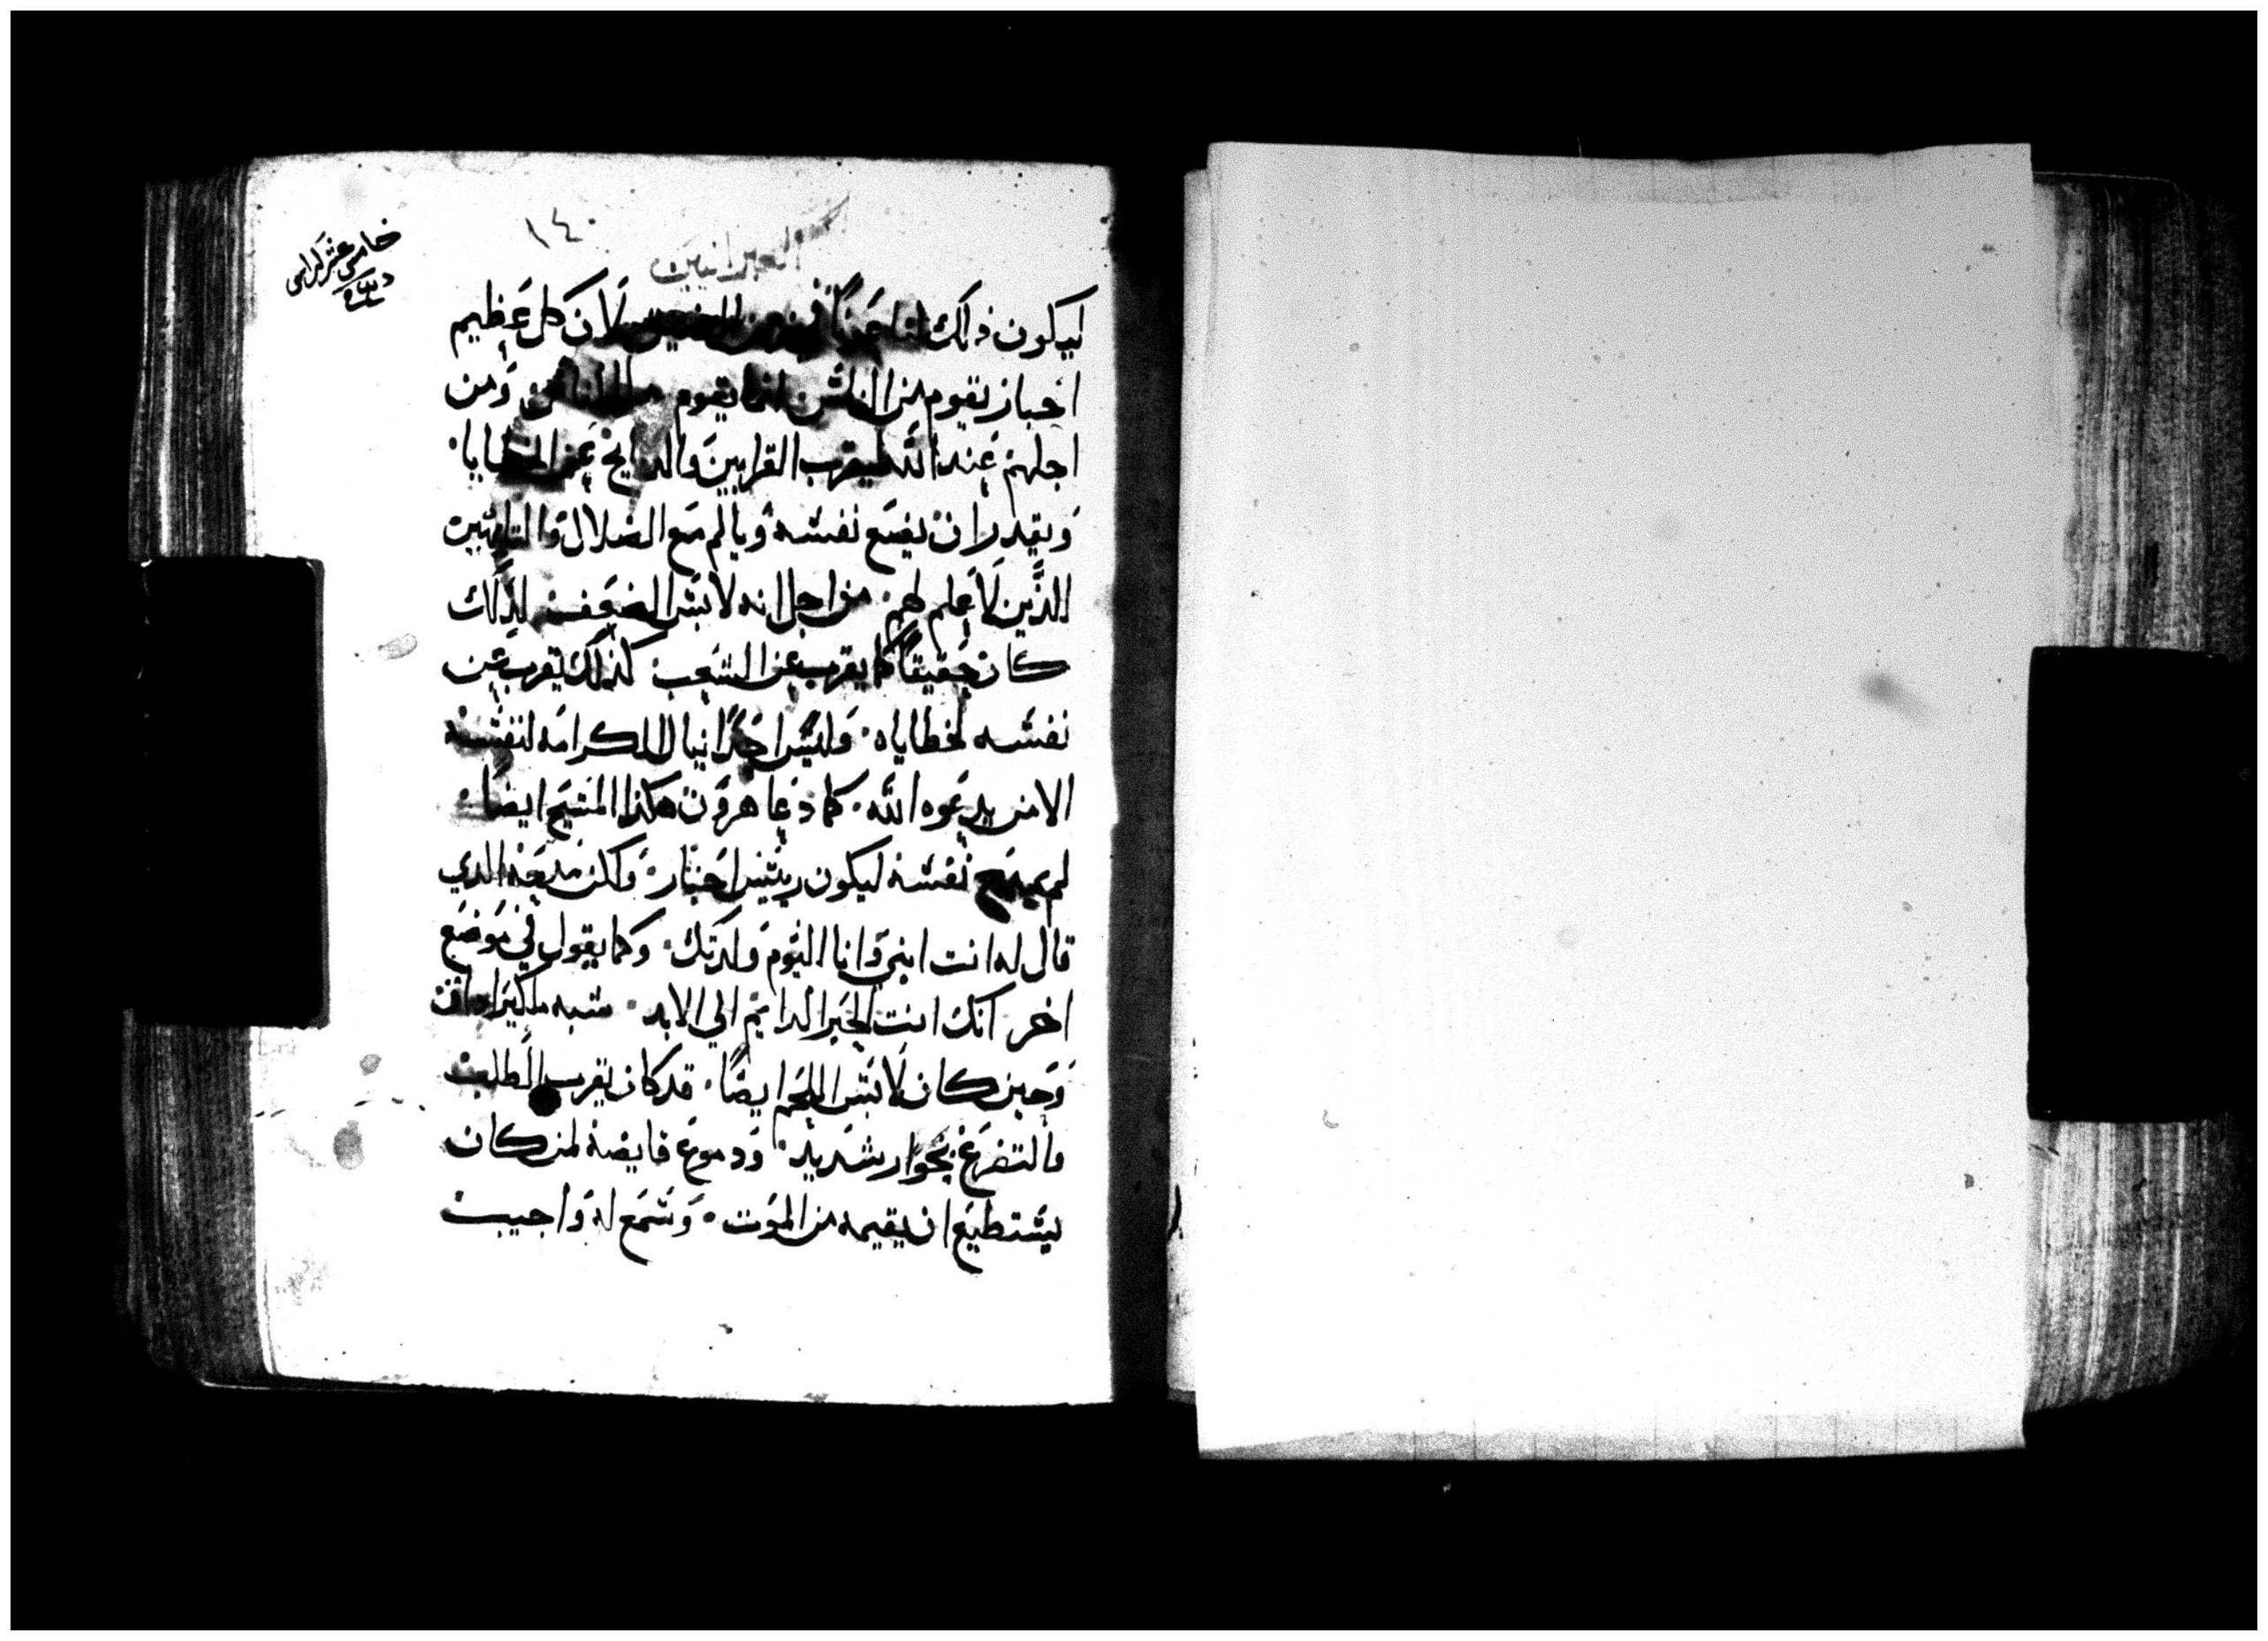 ١٤٠
العبرانيين
خامس عشر كراس
ليكون ذلك لنا عوناً في حين الضيق لان كل عظيم
احبار يقوم من الناس انما يقوم من الناس ومن
اجلهم عند الله ليقرب القرابين والدبايح عن الخطايا٠
ويقدر ان يضع نفسه ويالم مع الضلال والتايهين
الذين لا علم لهم٠ من اجل انه لابس الضعف لذلك
كان حقيقاً كما يقرب عن الشعب كذلك يقرب عن
نفسه لخطاياه٠ وليس احداً ينال الكرامه لنفسه
الا من يدعوه الله٠ كما دعا هرون هكذا المسيح ايضا٠
لم يمدح نفسه ليكون رييس احبار٠ ولكن مدحه الدي
قال له انت ابني وانا اليوم ولدتك٠ وكما يقول في موضع
اخر انك انت الحبر الدايم الي الابد٠ شبه ملكيزاداق
وحين كان لابس اللحم ايضًا٠ قد كان يقرب الطلبت
والتضرع بخوار شديد٠ ودموع فايضة لمن كان
يستطيع ان يقيمه من الموت٠ وسمع له واجيب